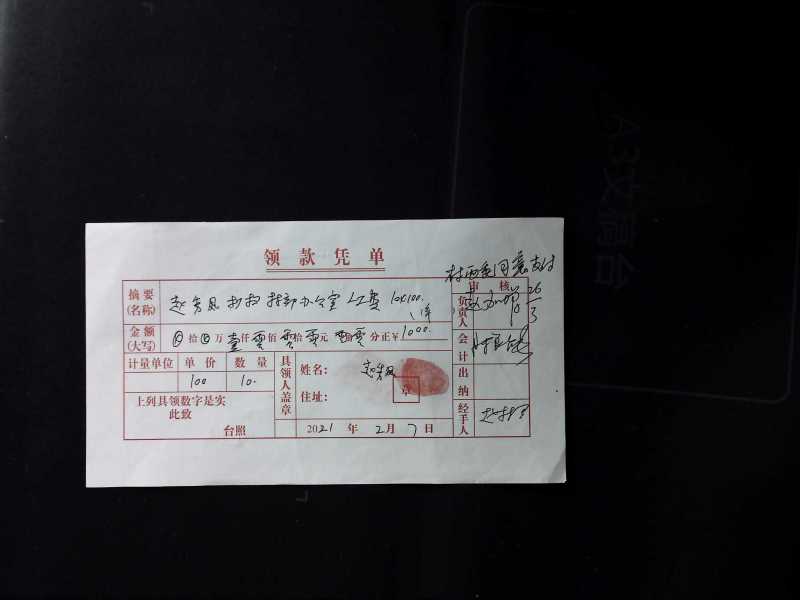 领款凭单
村两委同意支付
摘要
(名称)
打扫村部办公室工资 10×100.
审核
负责人
26
3
金额
(大写)
拾 万 壹仟零佰零拾零元 角 分正¥ 1000.
会计
计量单位 单价 数量
100 10.
具领人盖章
姓名:
章
住址:
出纳
上列具领数字是实
此致
台照
2021 年 2月 7 日
经手人
A3文高台